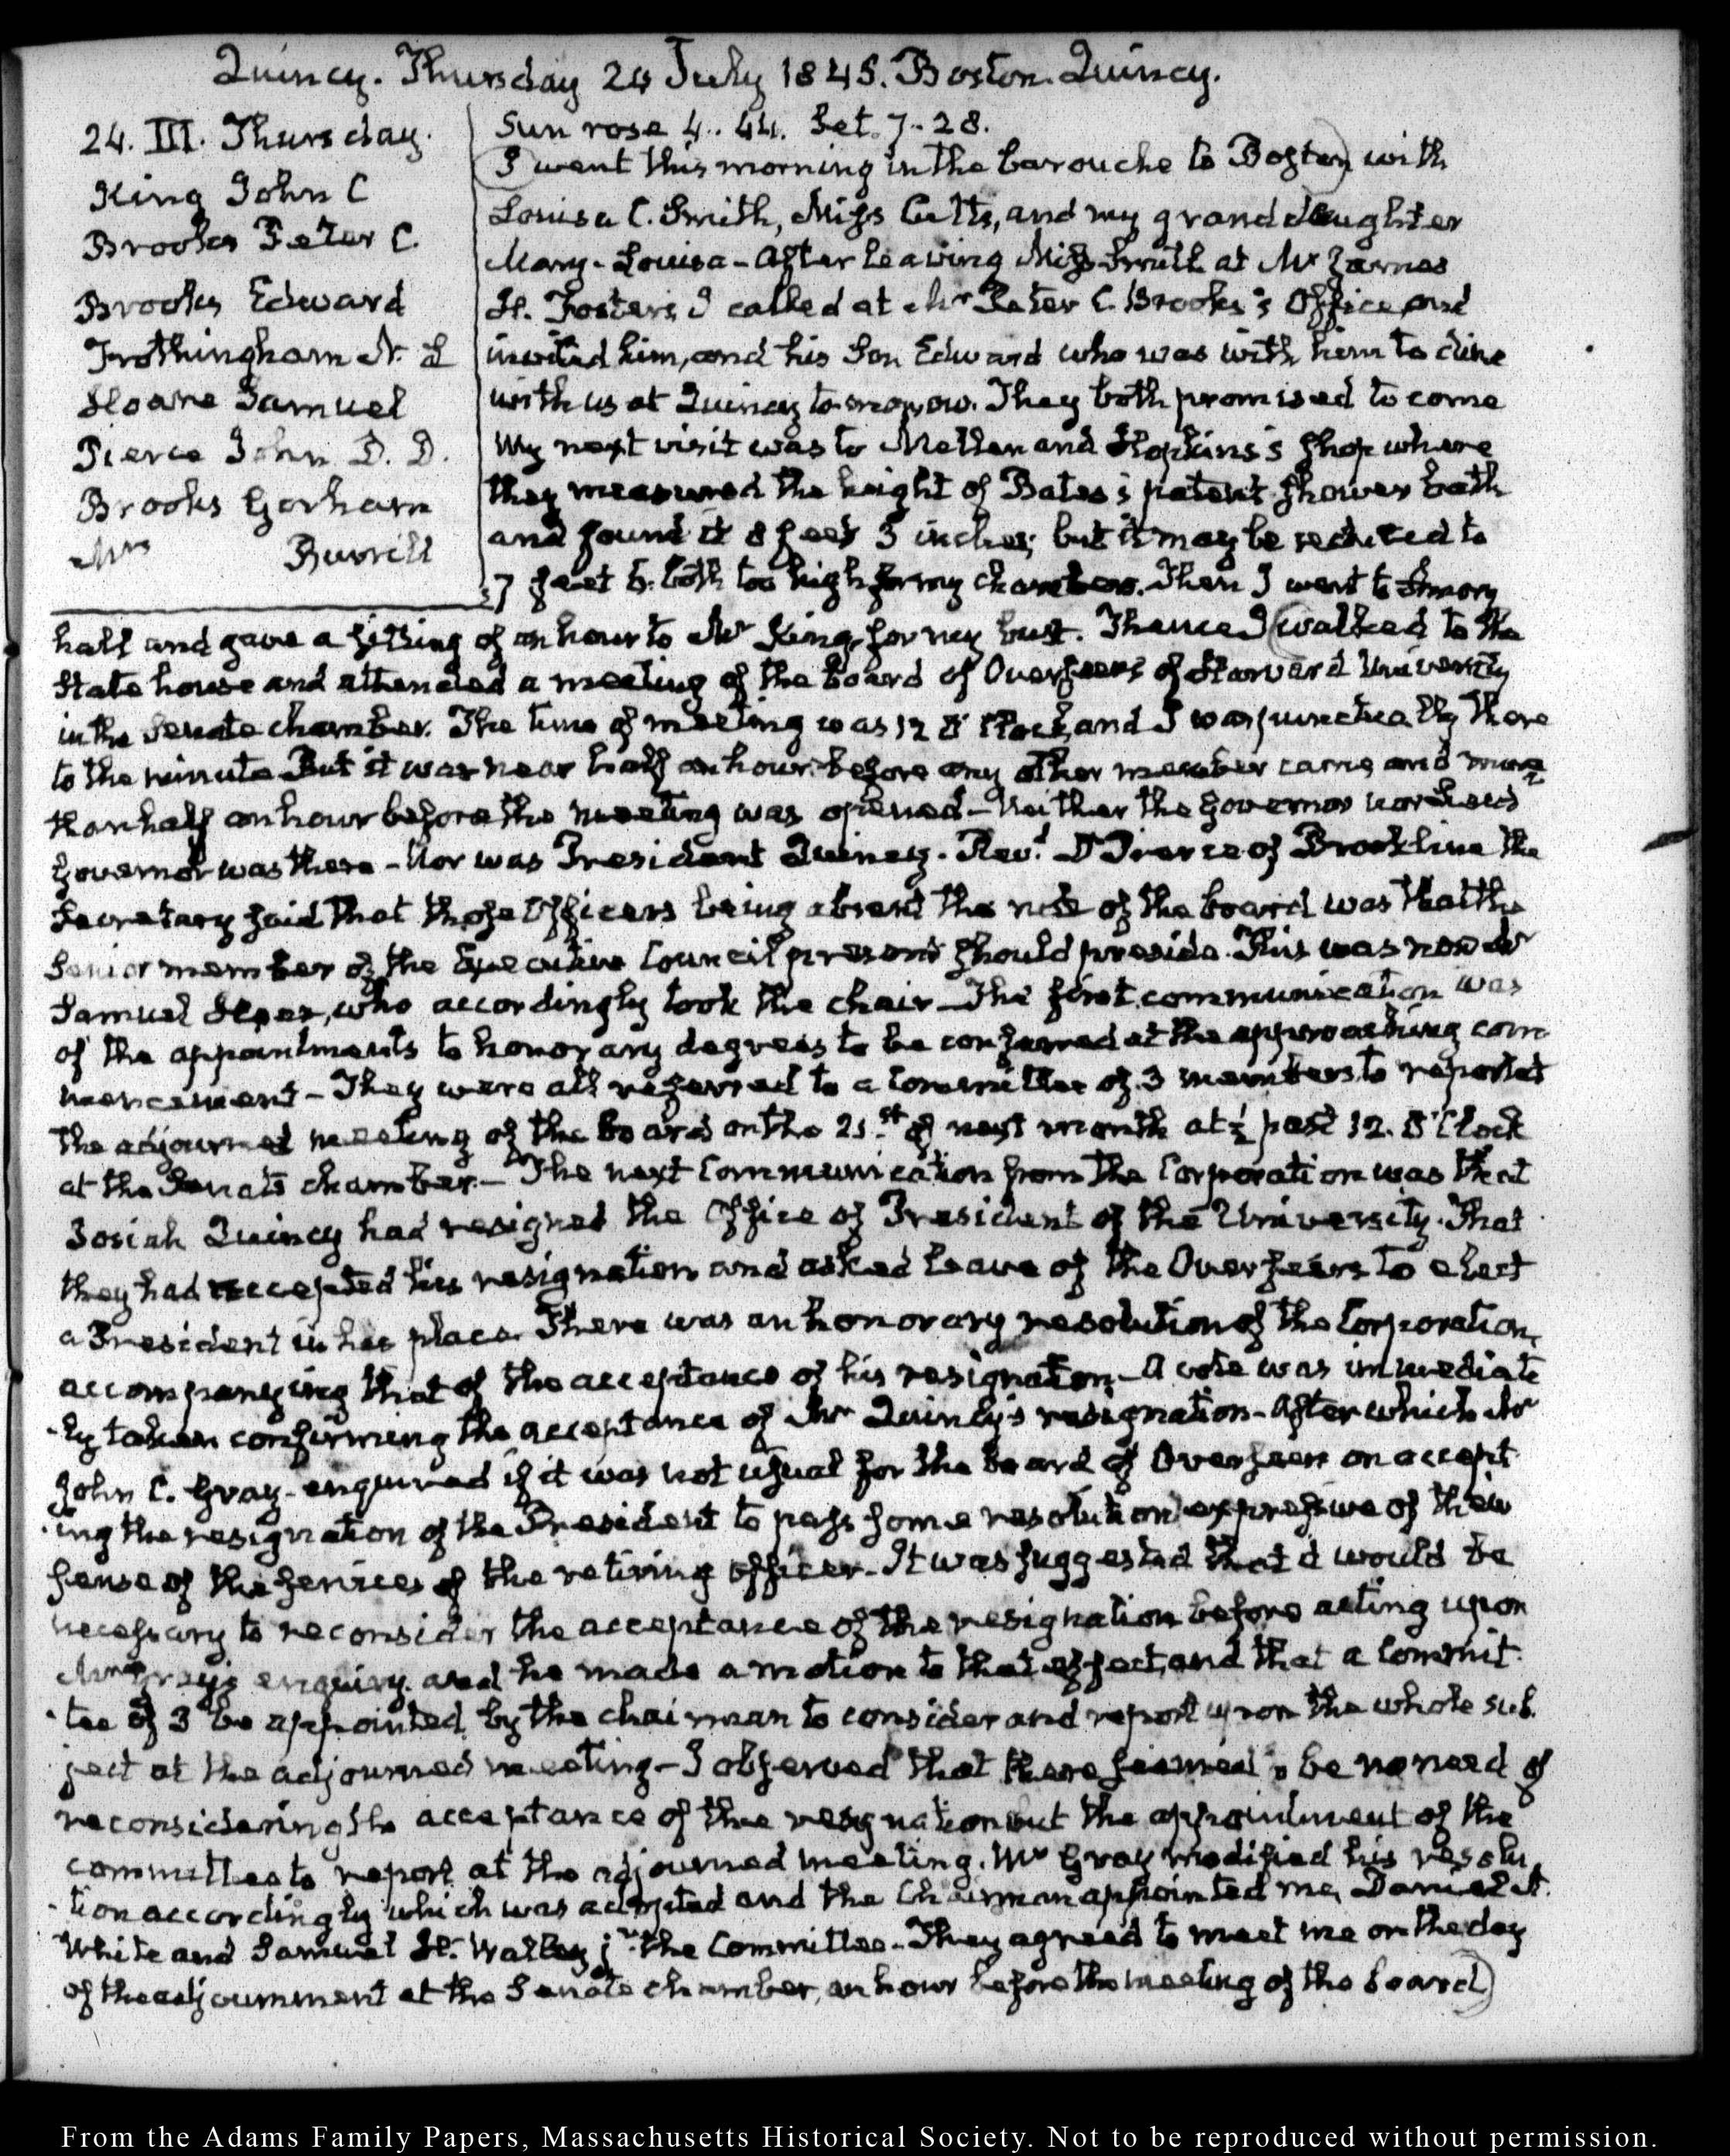 Quincy. Thursday 24 July 1845. Boston. Quincy.
24. III. Thursday.
King John C
Brooks Peter C.
Brooks Edward
Frothingham N. L
Hoare Samuel
Pierce John D. D.
Brooks Gorham
Mrs Burrill
Sun rose 4.. 44. Set. 7-28.
I went this morning in the barouche to Boston, with
Louisa C. Smith, Miss Cutts, and my granddaughter
Mary-Louisa - After leaving Miss Smith at Mr James
H. Foster's, I called at Mr Peter C. Brooks's Office and
invited him, and his Son Edward who was with him to dine
with us at Quincy to-morrow. They both promised to come
My next visit was to and Hopkins's shop where
they measured the height of Bates's patent shower bath
and found it 8 feet 3 inches; but it may be reduced to
7 feet 6. both too high for my chamber. Then I went to Amory
hall and gave a sitting of an hour to Mr King, for my bust. Thence I walked to the
State house and attended a meeting of the board of Overseers of Harvard University
in the Senate chamber. The time of meeting was 12 O'Clock, and I was punctually there
to the minute But it was near half an hour before any other member came and more
than half an hour before the meeting was opened - Neither the Governor nor Lieut
Governor was there - Nor was President Quincy. Revd. Dr Pierce of Brookline the
Secretary said that those Officers being absent the rule of the board was that the
Senior member of the Executive Council present should preside. This was now Mr
Samuel Hoar, who accordingly took the chair - The first communication was
of the appointments to honorary degrees to be conferred at the approaching com
mencement - They were all referred to a Committee of 3 members to report at
the adjourned meeting of the board on the 21.st of next month at ½ past 12. O'Clock
at the Senate chamber - The next Communication from the Corporation was that
Josiah Quincy had resigned the Office of President of the University. That
they had accepted his resignation and asked leave of the Overseers to elect
a President in his place. There was an honorary resolution of the Corporation,
accompanying that of the acceptance of his resignation - A vote was immediate
-ly taken confirming the acceptance of Mr Quincy's resignation - After which Mr
John C. Gray - enquired if it was not usual for the board of Overseers on accept
-ing the resignation of the President to pass some resolution expressive of their
sense of the services of the retiring officer - It was suggested that it would be
necessary to reconsider the acceptance of the resignation before acting upon
Mr Gray's enquiry. and he made a motion to that effect, and that a Commit
-tee of 3 be appointed by the chairman to consider and report upon the whole sub.
ject at the adjourned meeting - I observed that there seemed to be no need of
reconsidering the acceptance of the resignation but the appointment of the
committee to report at the adjourned meeting. Mr Gray modified his resolu
-tion accordingly which was adopted and the Chairman appointed me, Daniel A.
White and Samuel H. Walley jr. the Committee - They agreed to meet me on the day
of the adjournment at the Senate chamber, an hour before the meeting of the board
From the Adams Family Papers, Massachusetts Historical Society. Not to be reproduced without permission.